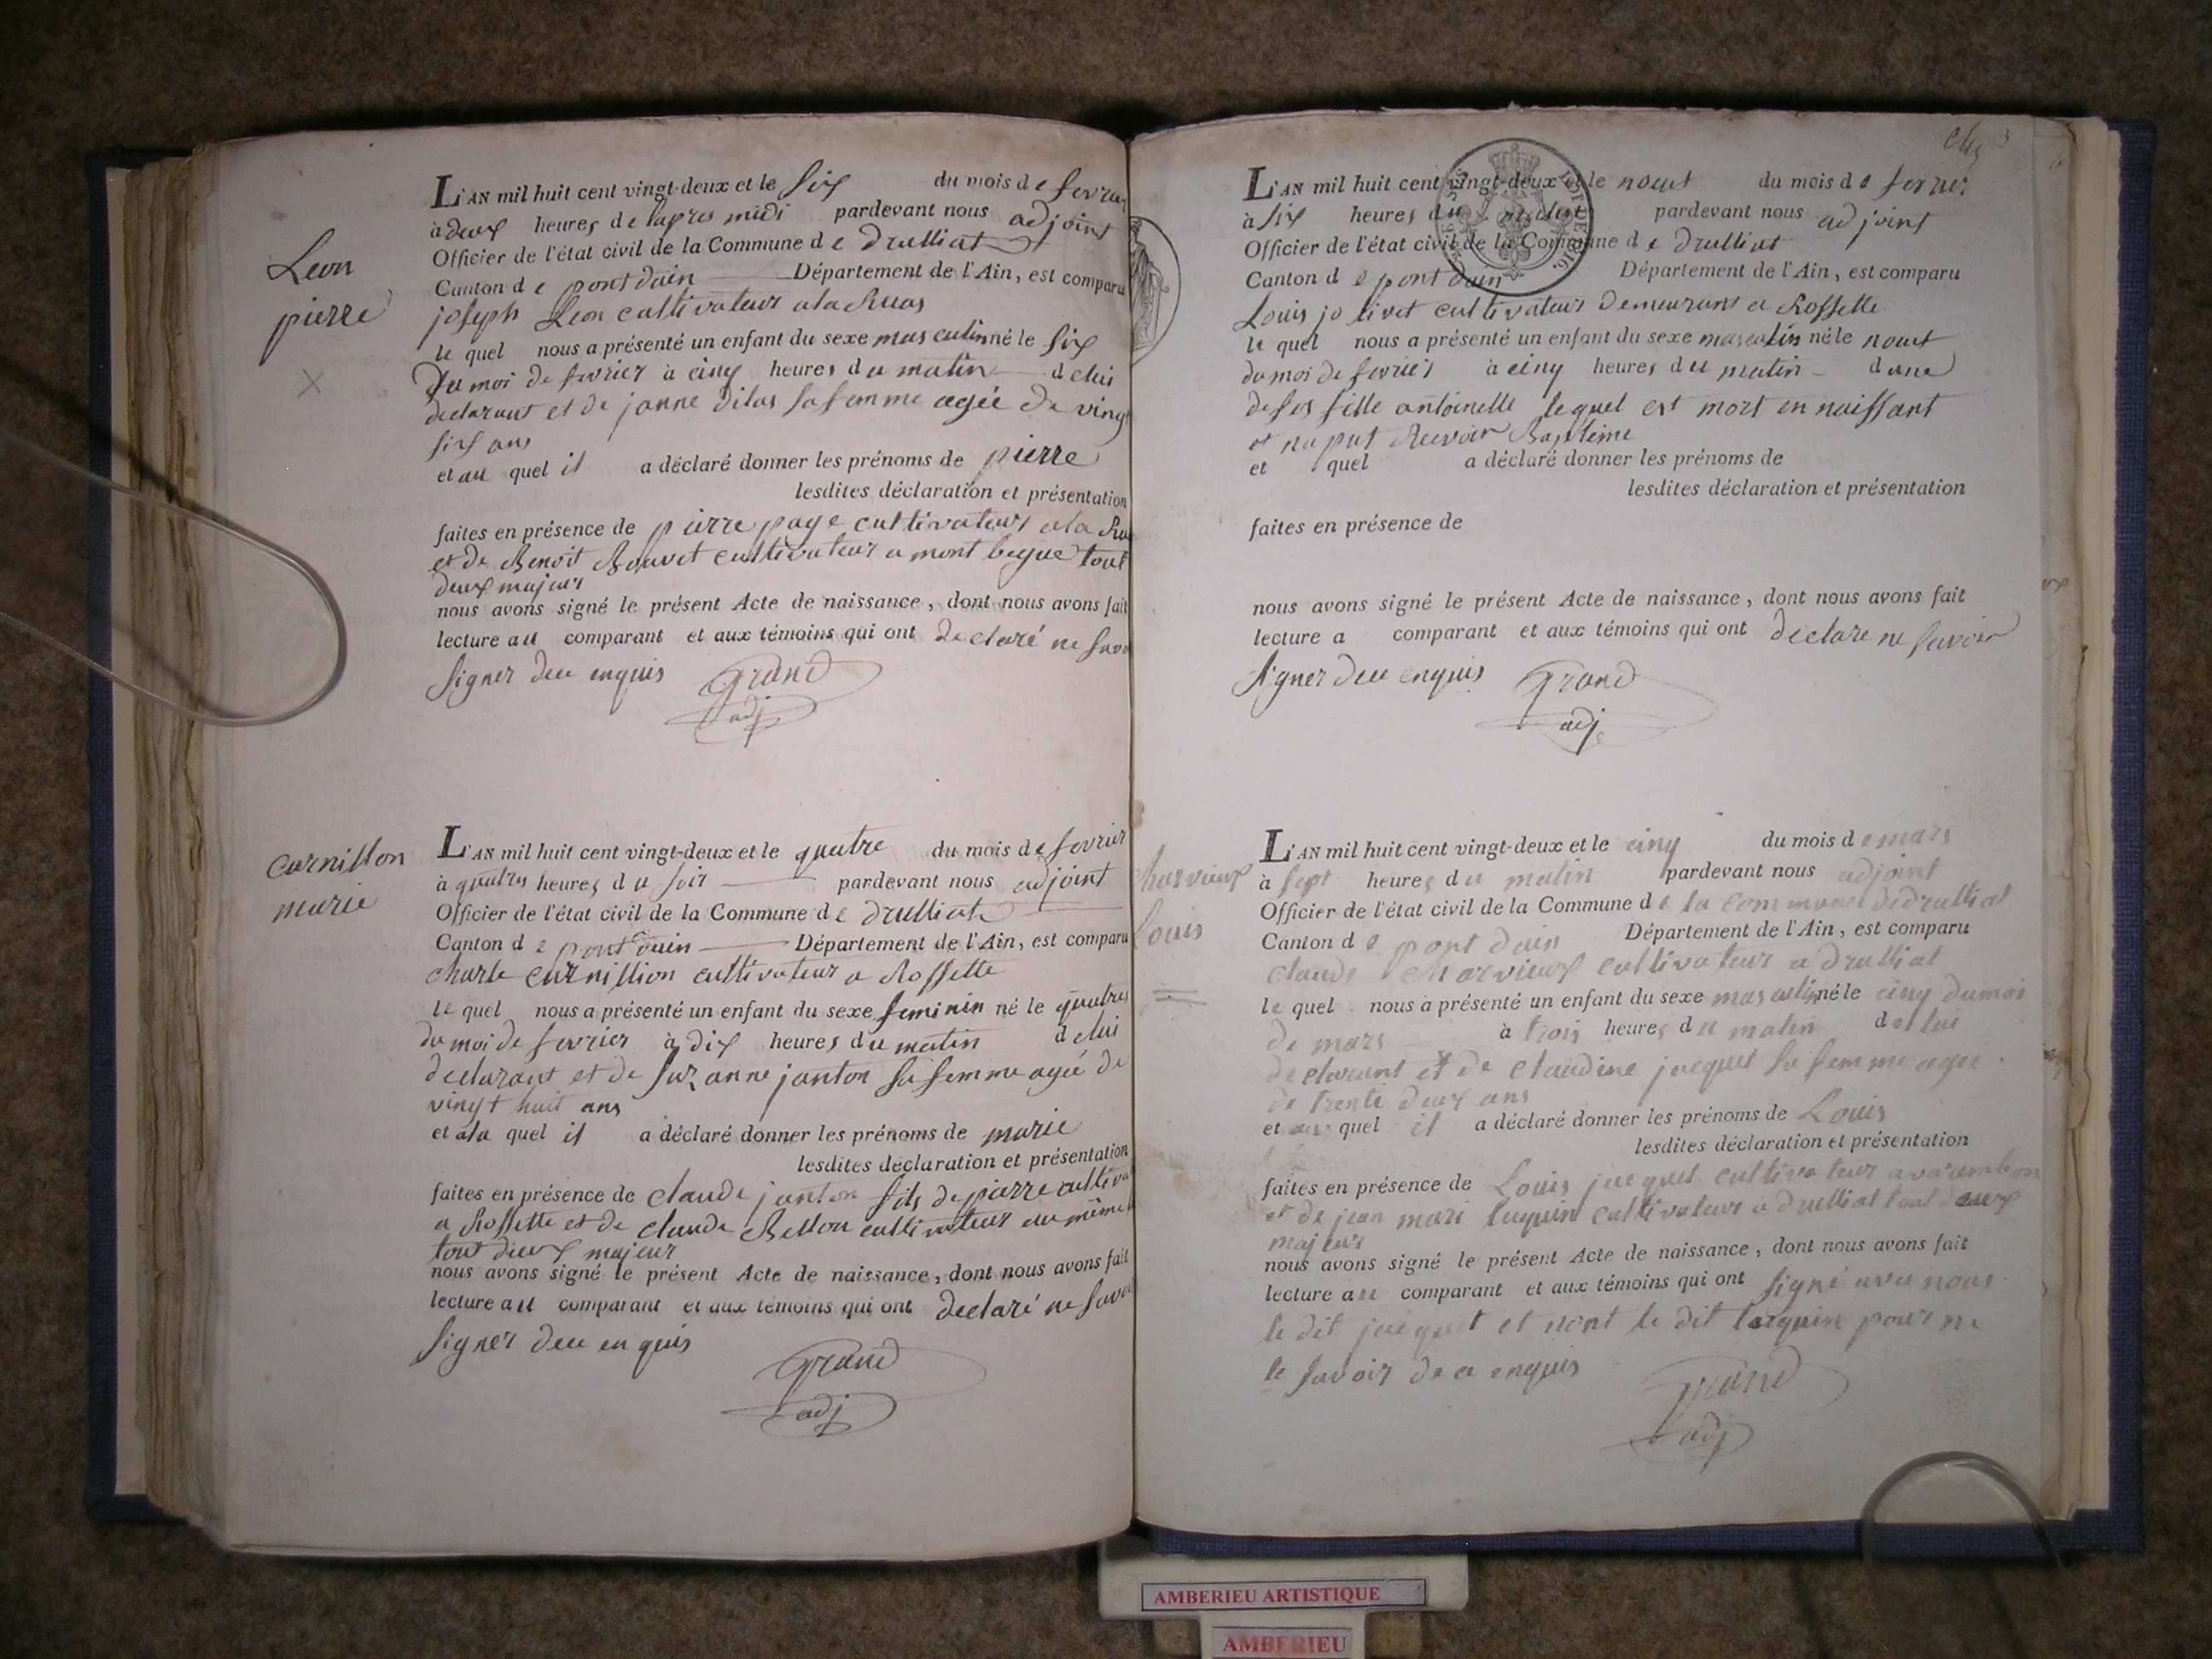 Leon
pierre
L'AN mil huit cent vingt-deux et le six du mois de fevrier
à deux heures de lapres midi pardevant nous adjoint
Officier de l'état civil de la Commune de Drulliat
Canton de pont dain Département de l'Ain, est comparu
joseph Leon cultivateur a la Ruas
le quel nous a présenté un enfant du sexe masculin né le six
du moi de fevrier à cinq heures du matin de lui
declarant et de janne Dilas sa femme agée de vingt
six ans
et au quel il a déclaré donner les prénoms de pierre
lesdites déclaration et présentation
faites en présence de pierre page cultivateur a la Rua
et de Benoit Bouvet cultivateur a mont begue tout
deux majeur
nous avons signé le présent Acte de naissance, dont nous avons fait
lecture au comparant et aux témoins qui ont declaré ne savoi
signer deu enquis Grand
adj
curnillon
marie
L'AN mil huit cent vingt-deux et le quatre du mois de fevrier
à quatres heures du soir pardevant nous adjoint
Officier de l'état civil de la Commune de Drulliat
Canton de pont dain Département de l'Ain, est comparu
charle curnillion cultivateur a Rossette
le quel nous a présenté un enfant du sexe feminin né le quatres
du moi de fevrier à dix heures du matin de lui
declarant et de suzanne janton sa femme agée de
vingt huit ans
et a la quel il a déclaré donner les prénoms de marie
lesdites déclaration et présentation
faites en présence de claude janton fils de pierre cultiva
a Rossette et de claude Bellon cultivateur au même
tout deux majeur
nous avons signé le présent Acte de naissance, dont nous avons fait
lecture au comparant et aux témoins qui ont declaré ne savoi
signer deu en quis
Grand
adj
3
L'AN mil huit cent vingt-deux et le noeut du mois de fevrier
à six heures du matin pardevant nous adjoint
Officier de l'état civil de la Commune de Drulliat
Canton de pont dain Département de l'Ain, est comparu
Louis jolivet cultivateur Demeurant a Rossette
le quel nous a présenté un enfant du sexe masculin né le noeut
du moi de fevrier à cinq heures du matin dune
de ses fille antoinette lequel est mort en naissant
et na put Recevoir Bapteme
et quel a déclaré donner les prénoms de
lesdites déclaration et présentation
faites en présence de
nous avons signé le présent Acte de naissance, dont nous avons fait
lecture a comparant et aux témoins qui ont declare ne savoir
signer deu enquis Grand
adj
charvieux
Louis
L'AN mil huit cent vingt-deux et le cinq du mois de mars
à sept heures du matin pardevant nous adjoint
Officier de l'état civil de la Commune de la commune de drulliat
Canton de pont dain Département de l'Ain, est comparu
claude charvieux cultivateur a drulliat
le quel nous a présenté un enfant du sexe masculin né le cinq du moi
de mars à trois heures du matin de lui
declarant et de claudine jacquet sa femme agee
de trente deux ans
et au quel il a déclaré donner les prénoms de Louis
lesdites déclaration et présentation
faites en présence de Louis jacquet cultivateur a varambon
et de jean mari tarquin cultivateur a drulliat tout deux
majeur
nous avons signé le présent Acte de naissance, dont nous avons fait
lecture au comparant et aux témoins qui ont signé avec nous
le dit jacquet et nont le dit tarquin pour ne
le savoir de a enquis
Grand
adj
AMBERIEU ARTISTIQUE
AMBERIEU